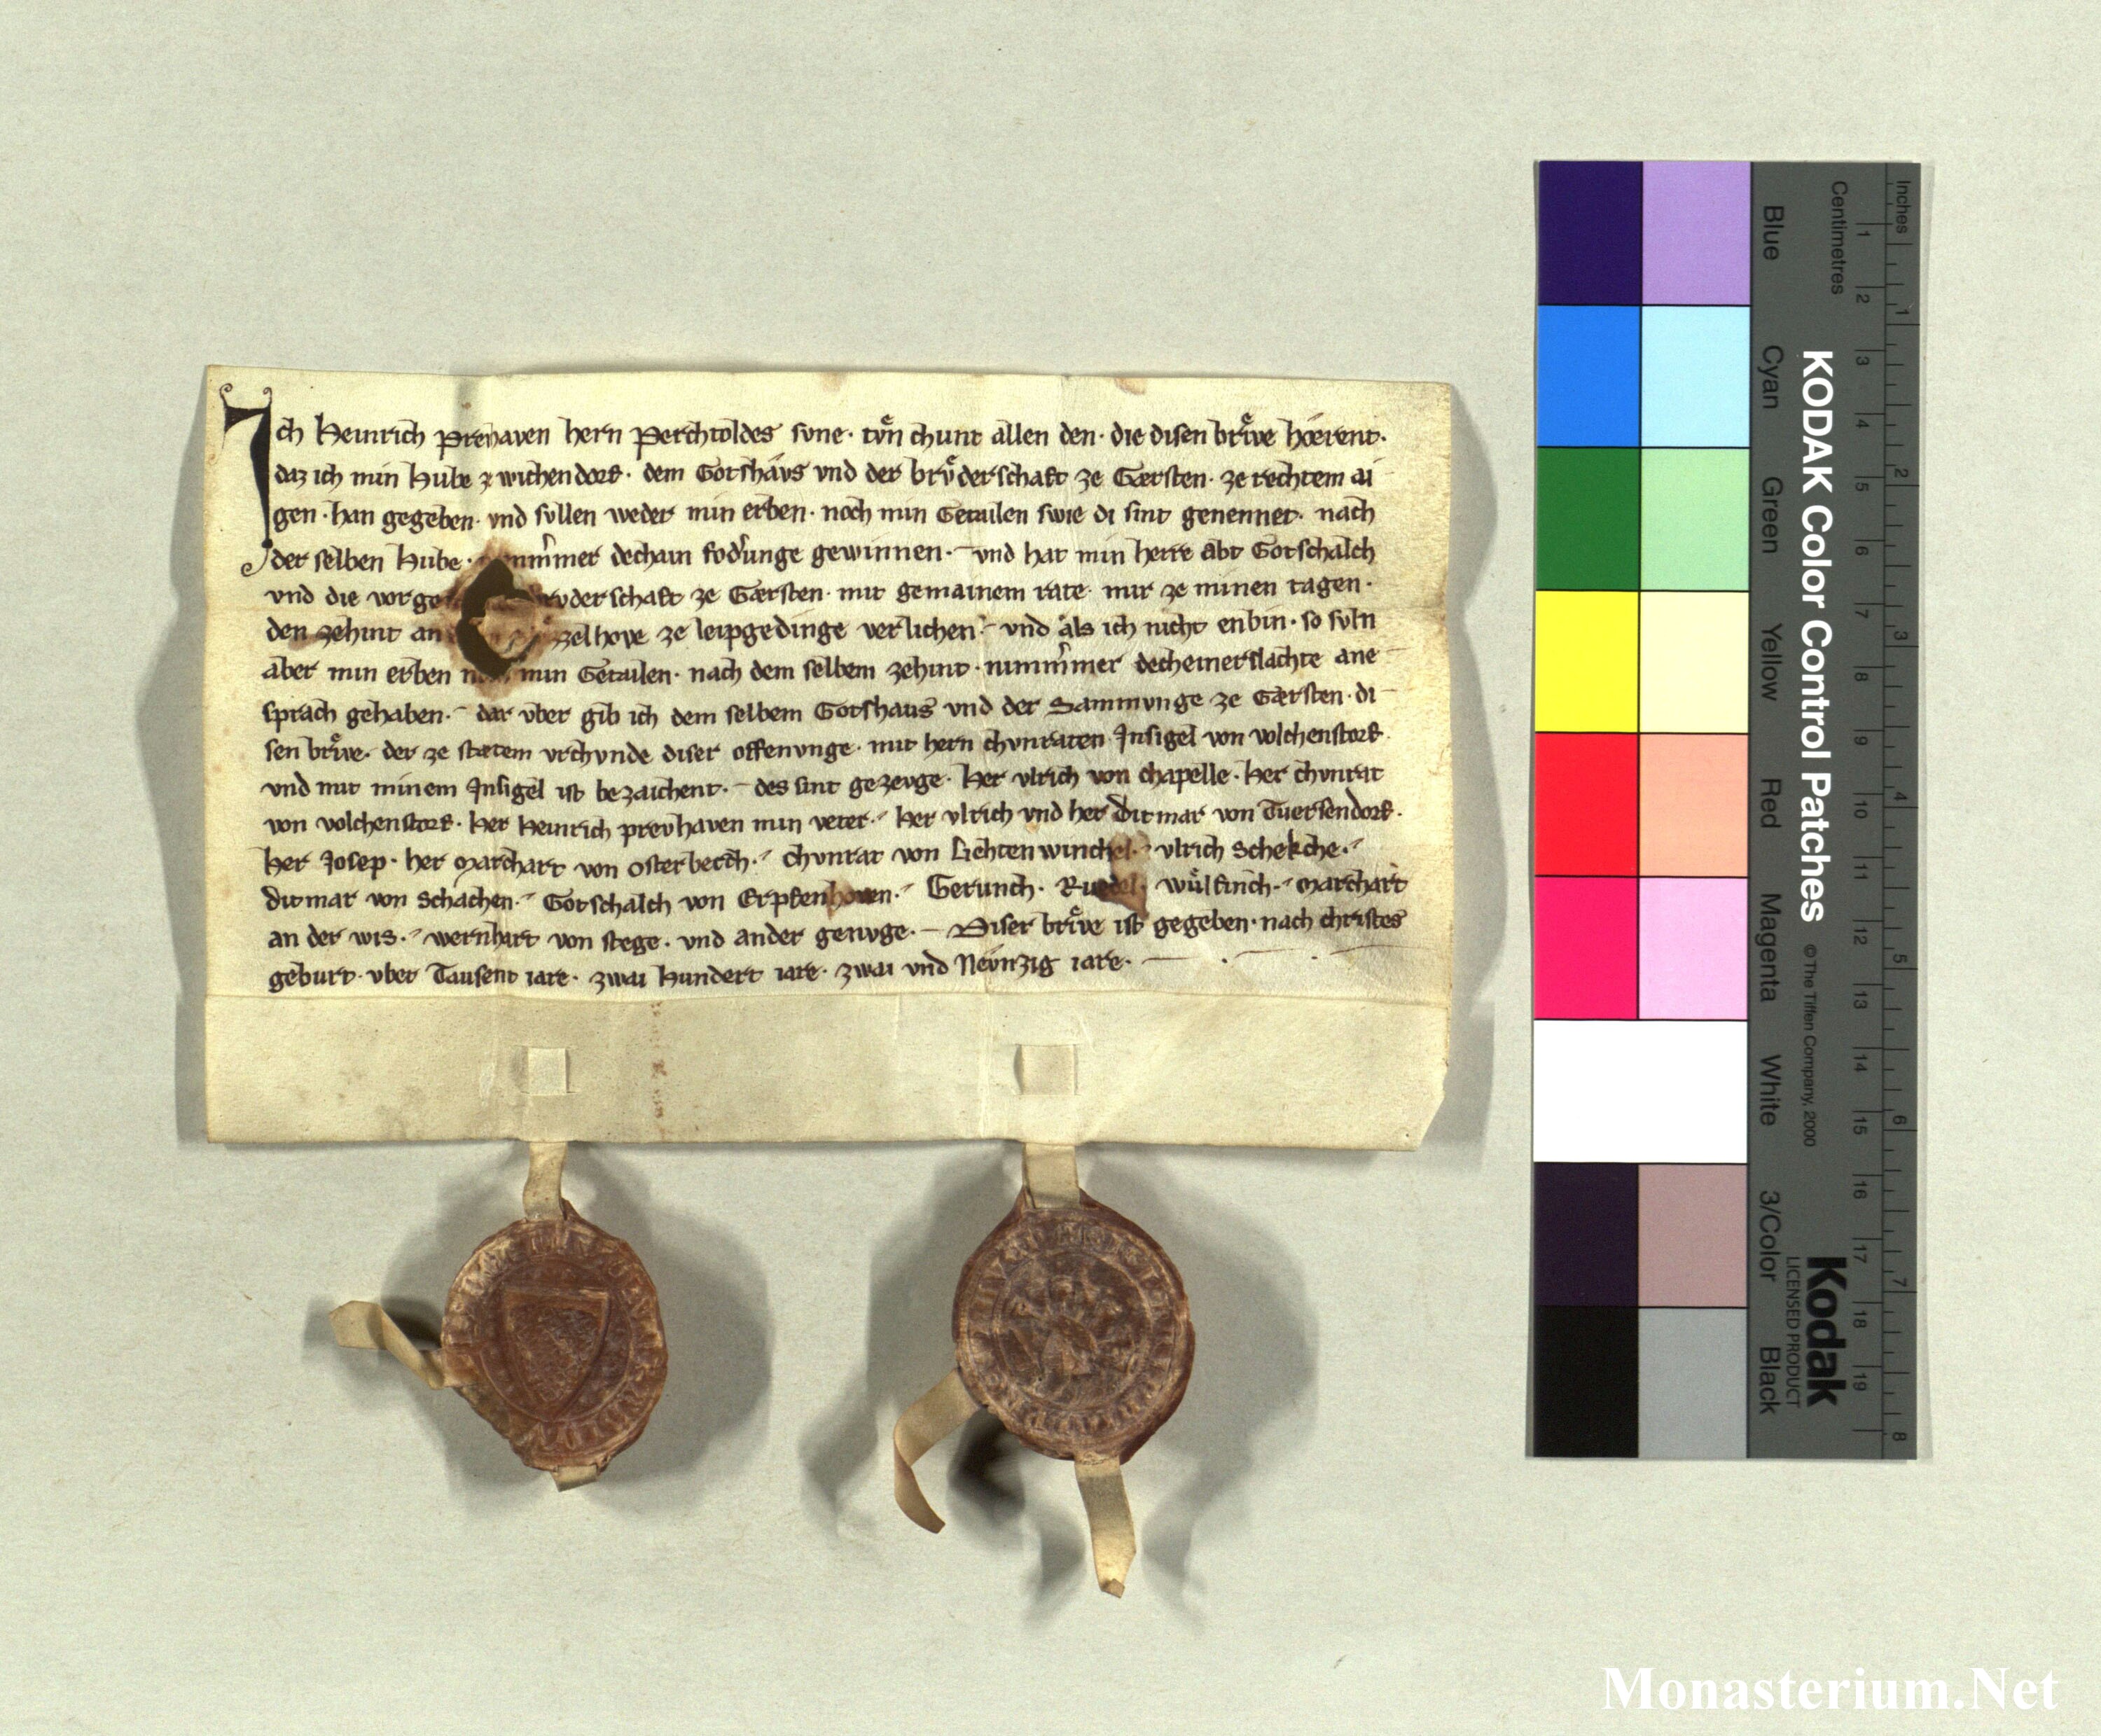 Ich Heinrich Prevhaven hern Perchtoldes svne· tvͤn chunt allen den· die disen brîeve hoerent·
daz ich min Hube ze wichendorf· dem Gotshávs vnd der brvͤderschaft ze Gærsten· ze rechtem ai
gen· han gegeben· vnd svllen weder min erben· noch min Getailen swie di sint genennet· nach
der selben Hube· nimmer dechain fod'unge gewinnen·– vnd hat min herre abt Gotschalch
vnd die vorge rvderschaft ze Gærsten· mit gemainem rate· mir ze minen tagen·
den zehint an zelhove ze leipgedinge verlichen·– vnd als ich nicht enbin· so svln
aber min erben noch min Getailen· nach dem selbem zehint· nimmer decheinerslachte ane
sprach gehaben·– dar vber gib ich dem selbem Gotshaus vnd der Sammvnge ze Gærsten· di
sen brîeve· der ze stætem vrchvnde diser offenvnge· mit hern chvnraten Insigel von volchenstorf·
vnd mit minem Insigel ist bezaichent·– des sint gezevge· Her vlrich von chapelle· Her chvnrat
von volchenstorf· Her Heinrich prevhaven min veter·– Her vlrich vnd her Ditmar von Tuersendorf·
Her Josep· her Marchart von Osterberch·– chvnrat von Liehtenwinchel·– vlrich Schekche·–
ditmar von Schachen·– Gotschalch von Erpfenhoven·– Gerunch· Ruedel· wuͤlfinch·– Marchart
an der wis·– wernhart von stege· vnd ander genvge·– Diser brîeve ist gegeben· nach christes
geburt· vber Tausent iare· zwai Hundert iare· zwai vnd Nevnzig iare·–
KODAK Color Control Patches © The Tiffen Company, 2000
Kodak
LICENSED PRODUCT
Inches 1 2 3 4 5 6 7 8
Centimetres 1 2 3 4 5 6 7 8 9 10 11 12 13 14 15 16 17 18 19
Blue Cyan Green Yellow Red Magenta White 3/Color Black
Monasterium.Net